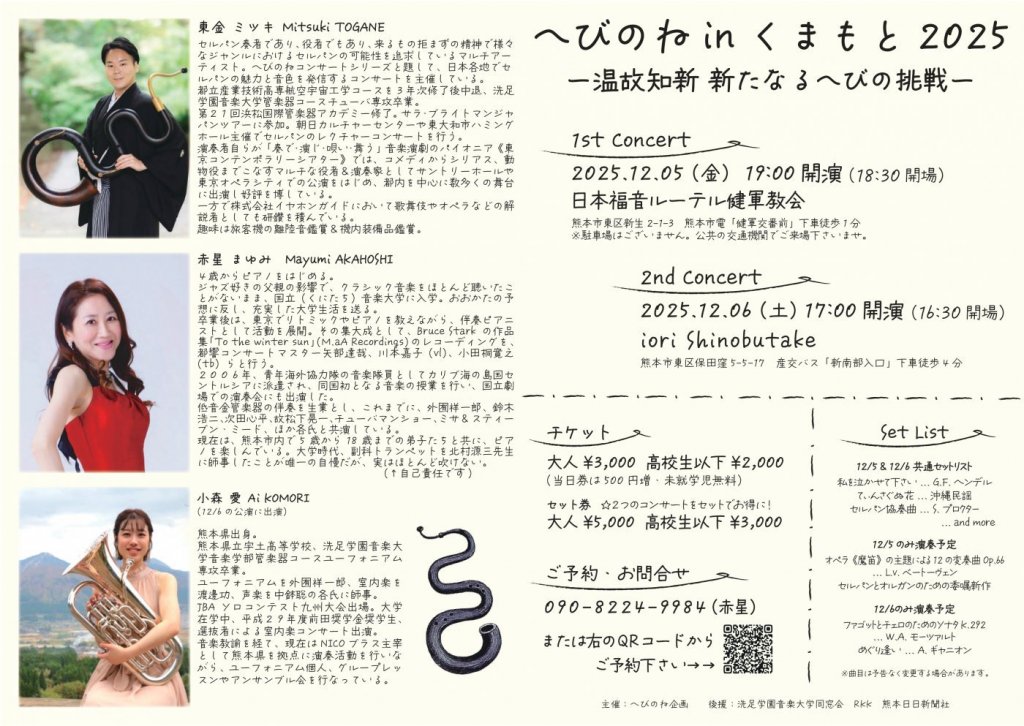 東金 ミツキ Mitsuki TOGANE
セルパン奏者であり、役者でもあり、来るもの拒まずの精神で様々
なジャンルにおけるセルパンの可能性を追求しているマルチアー
ティスト。へびのねコンサートシリーズと題して、日本各地でセ
ルパンの魅力と音色を発信するコンサートを主催している。
都立産業技術高専航空宇宙工学コースを3年次修了後中退、洗足
学園音楽大学管楽器コースチューバ専攻卒業。
第21回浜松国際管楽器アカデミー修了。サラ・ブライトマンジャ
パンツアーに参加。朝日カルチャーセンターや東大和市ハミング
ホール主催でセルパンのレクチャーコンサートを行う。
演奏者自らが「奏で・演じ・唄い・舞う」音楽演劇のパイオニア《東
京コンテンポラリーシアター》では、コメディからシリアス、動
物役までこなすマルチな役者&演奏家としてサントリーホールや
東京オペラシティでの公演をはじめ、都内を中心に数多くの舞台
に出演し好評を博している。
一方で株式会社イヤホンガイドにおいて歌舞伎やオペラなどの解
説者としても研鑽を積んでいる。
趣味は旅客機の離陸音鑑賞&機内装備品鑑賞。
赤星 まゆみ Mayumi AKAHOSHI
4歳からピアノをはじめる。
ジャズ好きの父親の影響で、クラシック音楽をほとんど聴いたこ
とがないまま、国立(くにたち)音楽大学に入学。おおかたの予
想に反し、充実した大学生活を送る。
卒業後は、東京でリトミックやピアノを教えながら、伴奏ピアニ
ストとして活動を展開。その集大成として、Bruce Stark の作品
集「To the winter sun」(M.aA Recordings)のレコーディングを、
都響コンサートマスター矢部達哉、川本嘉子(vl)、小田桐寛之
(tb)らと行う。
2006年、青年海外協力隊の音楽隊員としてカリブ海の島国セ
ントルシアに派遣され、同国初となる音楽の授業を行い、国立劇
場での演奏会にも出演した。
他音金管楽器の伴奏を生業とし、これまでに、外囿祥一郎、鈴木
浩二、次田心平、故松下晃一、チューバマンショー、ミサ&スティー
ブン・ミード、ほか各氏と共演している。
現在は、熊本市内で5歳から18歳までの弟子たちと共に、ピア
ノを楽しんでいる。大学時代、副科トランペットを北村源三先生
に師事したことが唯一の自慢だが、実はほとんど吹けない。
(↑自己責任です)
小森 愛 Ai KOMORI
(12/6の公演に出演)
熊本県出身。
熊本県立宇土高等学校、洗足学園音楽大
学音楽学部管楽器コースユーフォニアム
専攻卒業。
ユーフォニアムを外囿祥一郎、室内楽を
渡邊功、声楽を中鉢聡の各氏に師事。
JBA ソロコンテスト九州大会出場。大学
在学中、平成29年度前田奨学金奨学生、
選抜者による室内楽コンサート出演。
音楽教諭を経て、現在はNICOブラス主宰
として熊本県を拠点に演奏活動を行いな
がら、ユーフォニアム個人、グループレッ
スンやアンサンブル会を行なっている。
へびのね in くまもと 2025
ー温故知新 新たなるへびの挑戦ー
1st Concert
2025.12.05(金) 19:00 開演(18:30 開場)
日本福音ルーテル健軍教会
熊本市東区新生2-1-3 熊本市電「健軍交番前」下車徒歩1分
※駐車場はございません。公共の交通機関でご来場下さいませ。
2nd Concert
2025.12.06(土)17:00 開演(16:30 開場)
iori Shinobutake
熊本市東区保田窪5-5-17 産交バス「新南部入口」下車徒歩4分
チケット
大人 ¥3,000 高校生以下 ¥2,000
(当日券は500円増・未就学児無料)
セット券 ☆2つのコンサートをセットでお得に!
大人 ¥5,000 高校生以下 ¥3,000
ご予約・お問合せ
090-8224-9984(赤星)
または右のQRコードから
ご予約下さい→→
Set List
12/5 & 12/6 共通セットリスト
私を泣かせて下さい … G.F. ヘンデル
てぃんさぐぬ花 … 沖縄民謡
セルパン協奏曲 … S. プロクター
… and more
12/5 のみ演奏予定
オペラ《魔笛》の主題による12の変奏曲 Op.66
… L.v. ベートーヴェン
セルパンとオルガンのための委嘱新作
12/6のみ演奏予定
ファゴットとチェロのためのソナタ K.292
… W.A. モーツァルト
めぐり逢い … A. ギャニオン
※曲目は予告なく変更する場合があります。
主催：へびのね企画 後援：洗足学園音楽大学同窓会 RKK 熊本日日新聞社